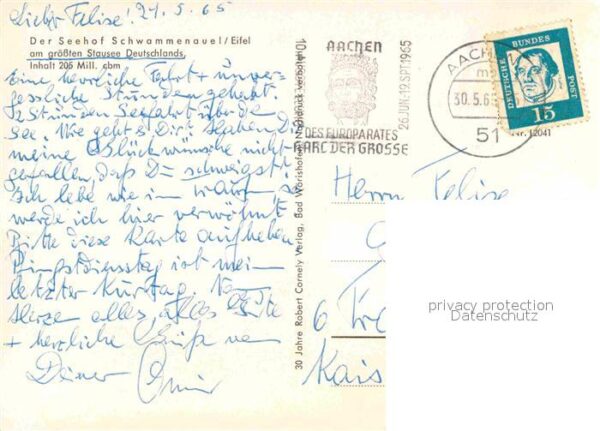 Lieber Felise! 29.5.65
Der Seehof Schwammenauel/Eifel
am größten Stausee Deutschlands,
Inhalt 205 Mill. cbm
Eine herrliche Fahrt + unver-
gessliche Stunden gehabt.
2 Stunden Seefahrt über den
See. Wie geht's Dir? Haben Dir
meine Glückwünsche nicht
gefallen, daß Du schweigst?
Ich lebe wie im
werde ich hier verwöhnt
Bitte diese Karte aufheben.
Pfingstdienstag ist mein
letzter Kurtag.
Herze alles, alles Gute
+ herzliche Grüße von
Deiner Omi
30 Jahre Robert Cornely Verlag, Bad Wörishofen, Nachdruck verboten!
101
AACHEN
26.JUNI-19.SPT.1965
DES EUROPARATES
KARL DER GROSSE
AACH
30.5.65
51
DEUTSCHE BUNDESPOST
15
Nr. 12041
Herrn Felise
6 Fr
Kais
privacy protection
Datenschutz